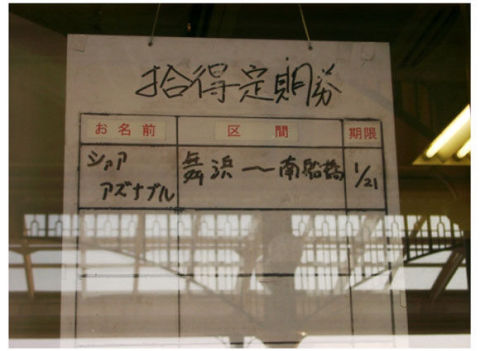 拾得定期券
お名前 区間 期限
シャア 舞浜〜南船橋 1/21
アズナブル